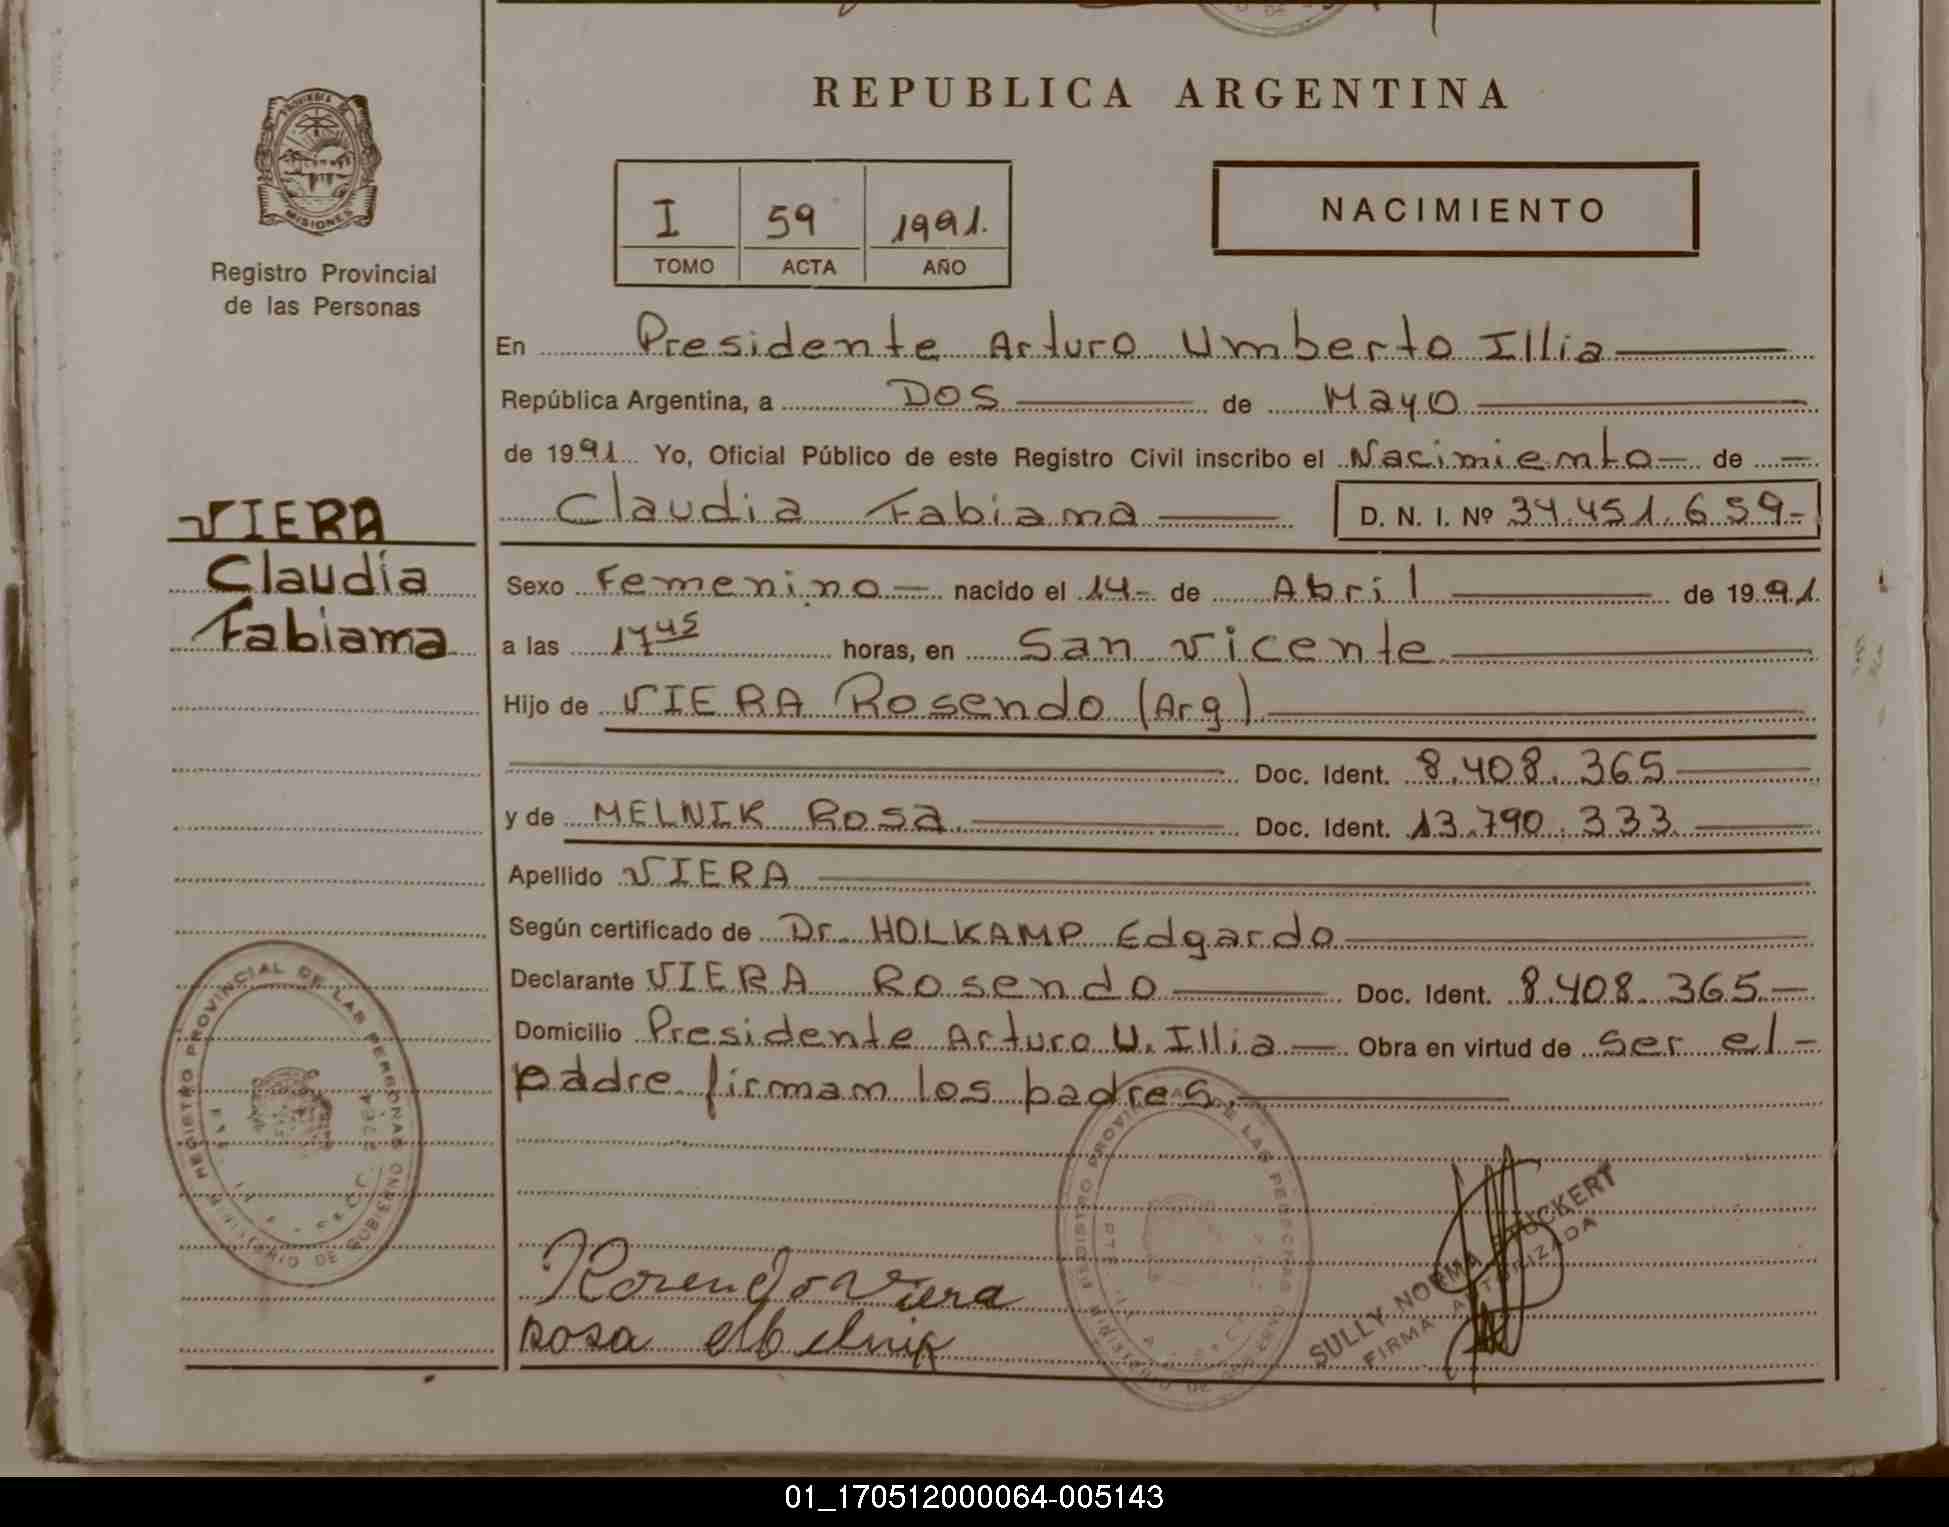 REPUBLICA ARGENTINA
PROVINCIA DE
MISIONES
Registro Provincial
de las Personas
I 59 1991.
TOMO ACTA AÑO
NACIMIENTO
En Presidente Arturo Umberto Illia
República Argentina, a DOS de Mayo
de 1991 Yo, Oficial Público de este Registro Civil inscribo el Nacimiento de
Claudia Fabiana D. N. I. Nº 34.451.659-
VIERA
Claudia
Fabiana
Sexo Femenino nacido el 14- de Abril de 1991
a las 17 45 horas, en San Vicente
Hijo de VIERA Rosendo (Arg)
Doc. Ident. 8.408.365
y de MELNIK Rosa Doc. Ident. 13.790.333
Apellido VIERA
Según certificado de Dr. HOLKAMP Edgardo
Declarante VIERA Rosendo Doc. Ident. 8.408.365
Domicilio Presidente Arturo U. Illia Obra en virtud de ser el
padre firman los padres.
REGISTRO PROVINCIAL DE LAS PERSONAS
MINISTERIO DE GOBIERNO
REGISTRO PROVINCIAL DE LAS PERSONAS
MINISTERIO DE GOBIERNO
Rosendo Viera
Rosa Melnik
SULLY NORMA
FIRMA AUTORIZADA
01_170512000064-005143